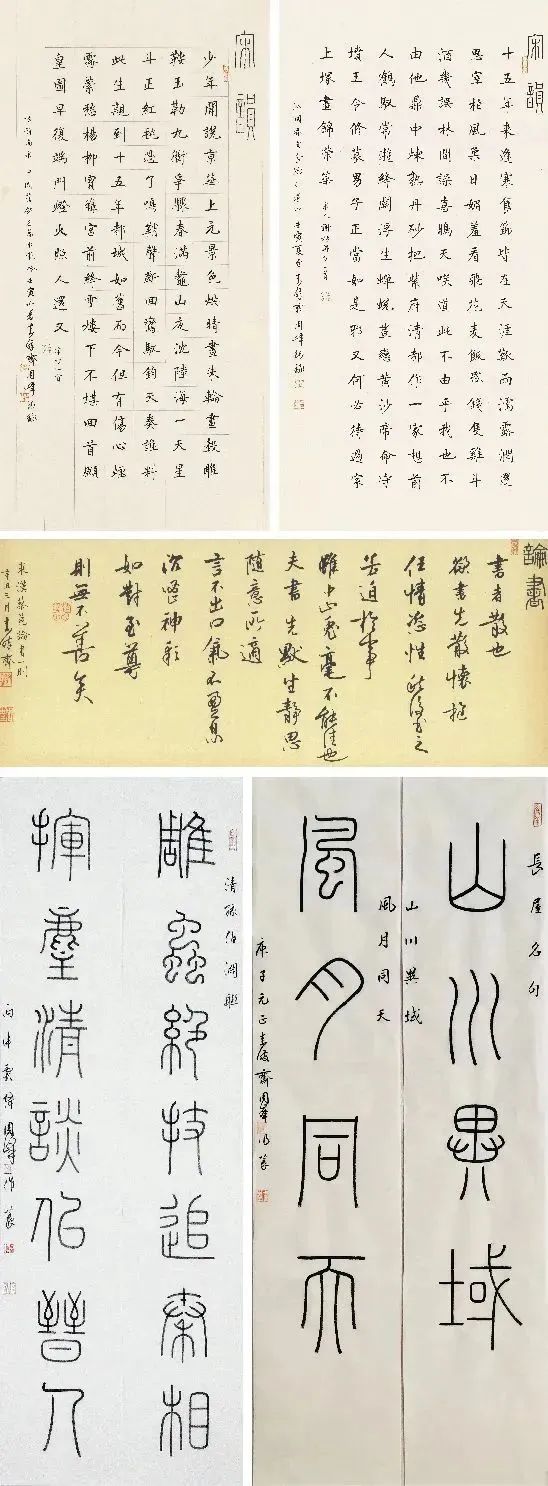 宋韻
少年聞說京華上元景色烘晴晝朱輪畫轂雕
鞍玉勒九衢爭驟春滿鰲山夜沈陸海一天星
斗正紅毬過了鳴鞘聲斷回鸞馭鈞天奏誰料
此生親到十五年都城如舊而今但有傷心煙
霧縈愁楊柳寶籙宮前絳霄樓下不堪回首願
皇圖早復端門燈火照人還又
宋韻
十五年來逢寒食節皆在天涯歎雨濡露潤還
思宰柏風柔日媚羞看飛花麥飯紙錢隻雞斗
酒幾誤林間噪喜鴉天笑道此不由乎我也不
由他鼎中煉熟丹砂把紫府清都作一家想前
人鶴馭常遊絳闕浮生蟬蛻豈戀黃沙帝命守
墳王令修墓男子正當如是耶又何必待過家
上塚晝錦榮華
論書
書者散也
欲書先散懷抱
任情恣性然後書之
若迫於事
雖中山兔毫不能佳也
夫書先默坐靜思
隨意所適
言不出口氣不盈息
沉密神彩
如對至尊
則無不善矣
東漢蔡邕論書一則
清孫伯淵聯
雕蟲絕技追秦相
揮麈清談佀晉人
長屋名句
山川異域
山川異域
風月同天
風月同天
庚子元正
齋周峰作篆